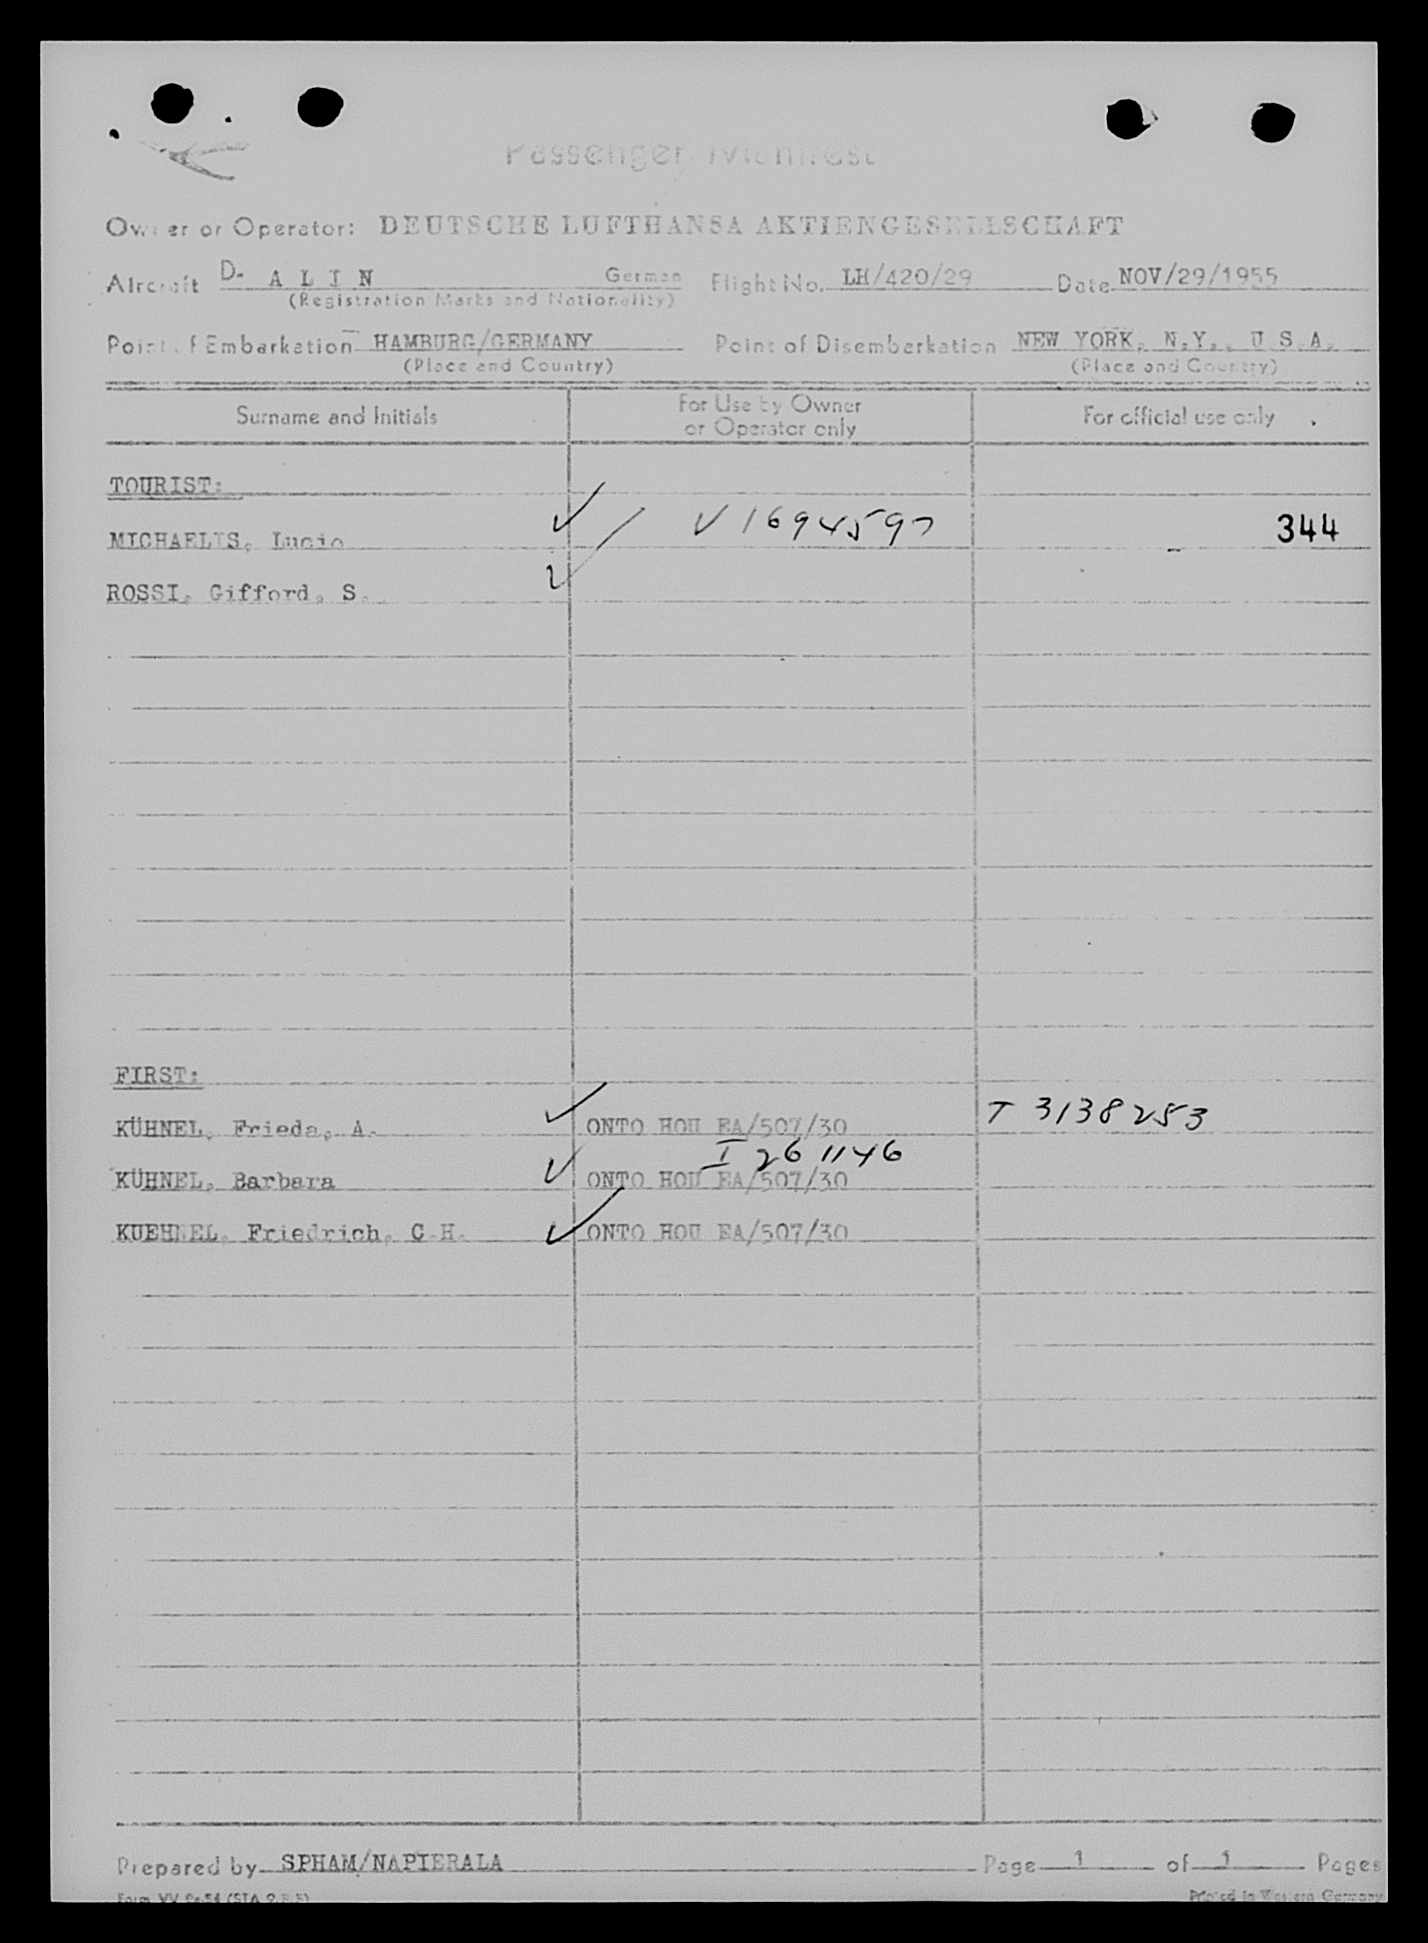 Passenger Manifest
Owner or Operator: DEUTSCHE LUFTHANSA AKTIENGESELLSCHAFT
Aircraft D- A L I N German Flight No. LH/420/29 Date NOV/29/1955
(Registration Marks and Nationality)
Point of Embarkation HAMBURG/GERMANY Point of Disembarkation NEW YORK, N.Y., U S.A.
(Place and Country) (Place and Country)
Surname and Initials For Use by Owner or Operator only For official use only
TOURIST:
MICHAELIS, Lucie ✓ V 1694597 344
ROSSI, Gifford, S. ✓
FIRST:
KÜHNEL, Frieda, A. ✓ ONTO HOU EA/507/30 T 3138253
I 261146
KÜHNEL, Barbara ✓ ONTO HOU EA/507/30
KUEHNEL, Friedrich, C.H. ✓ ONTO HOU EA/507/30
Prepared by SPHAM/NAPIERALA Page 1 of 1 Pages
Printed in Western Germany